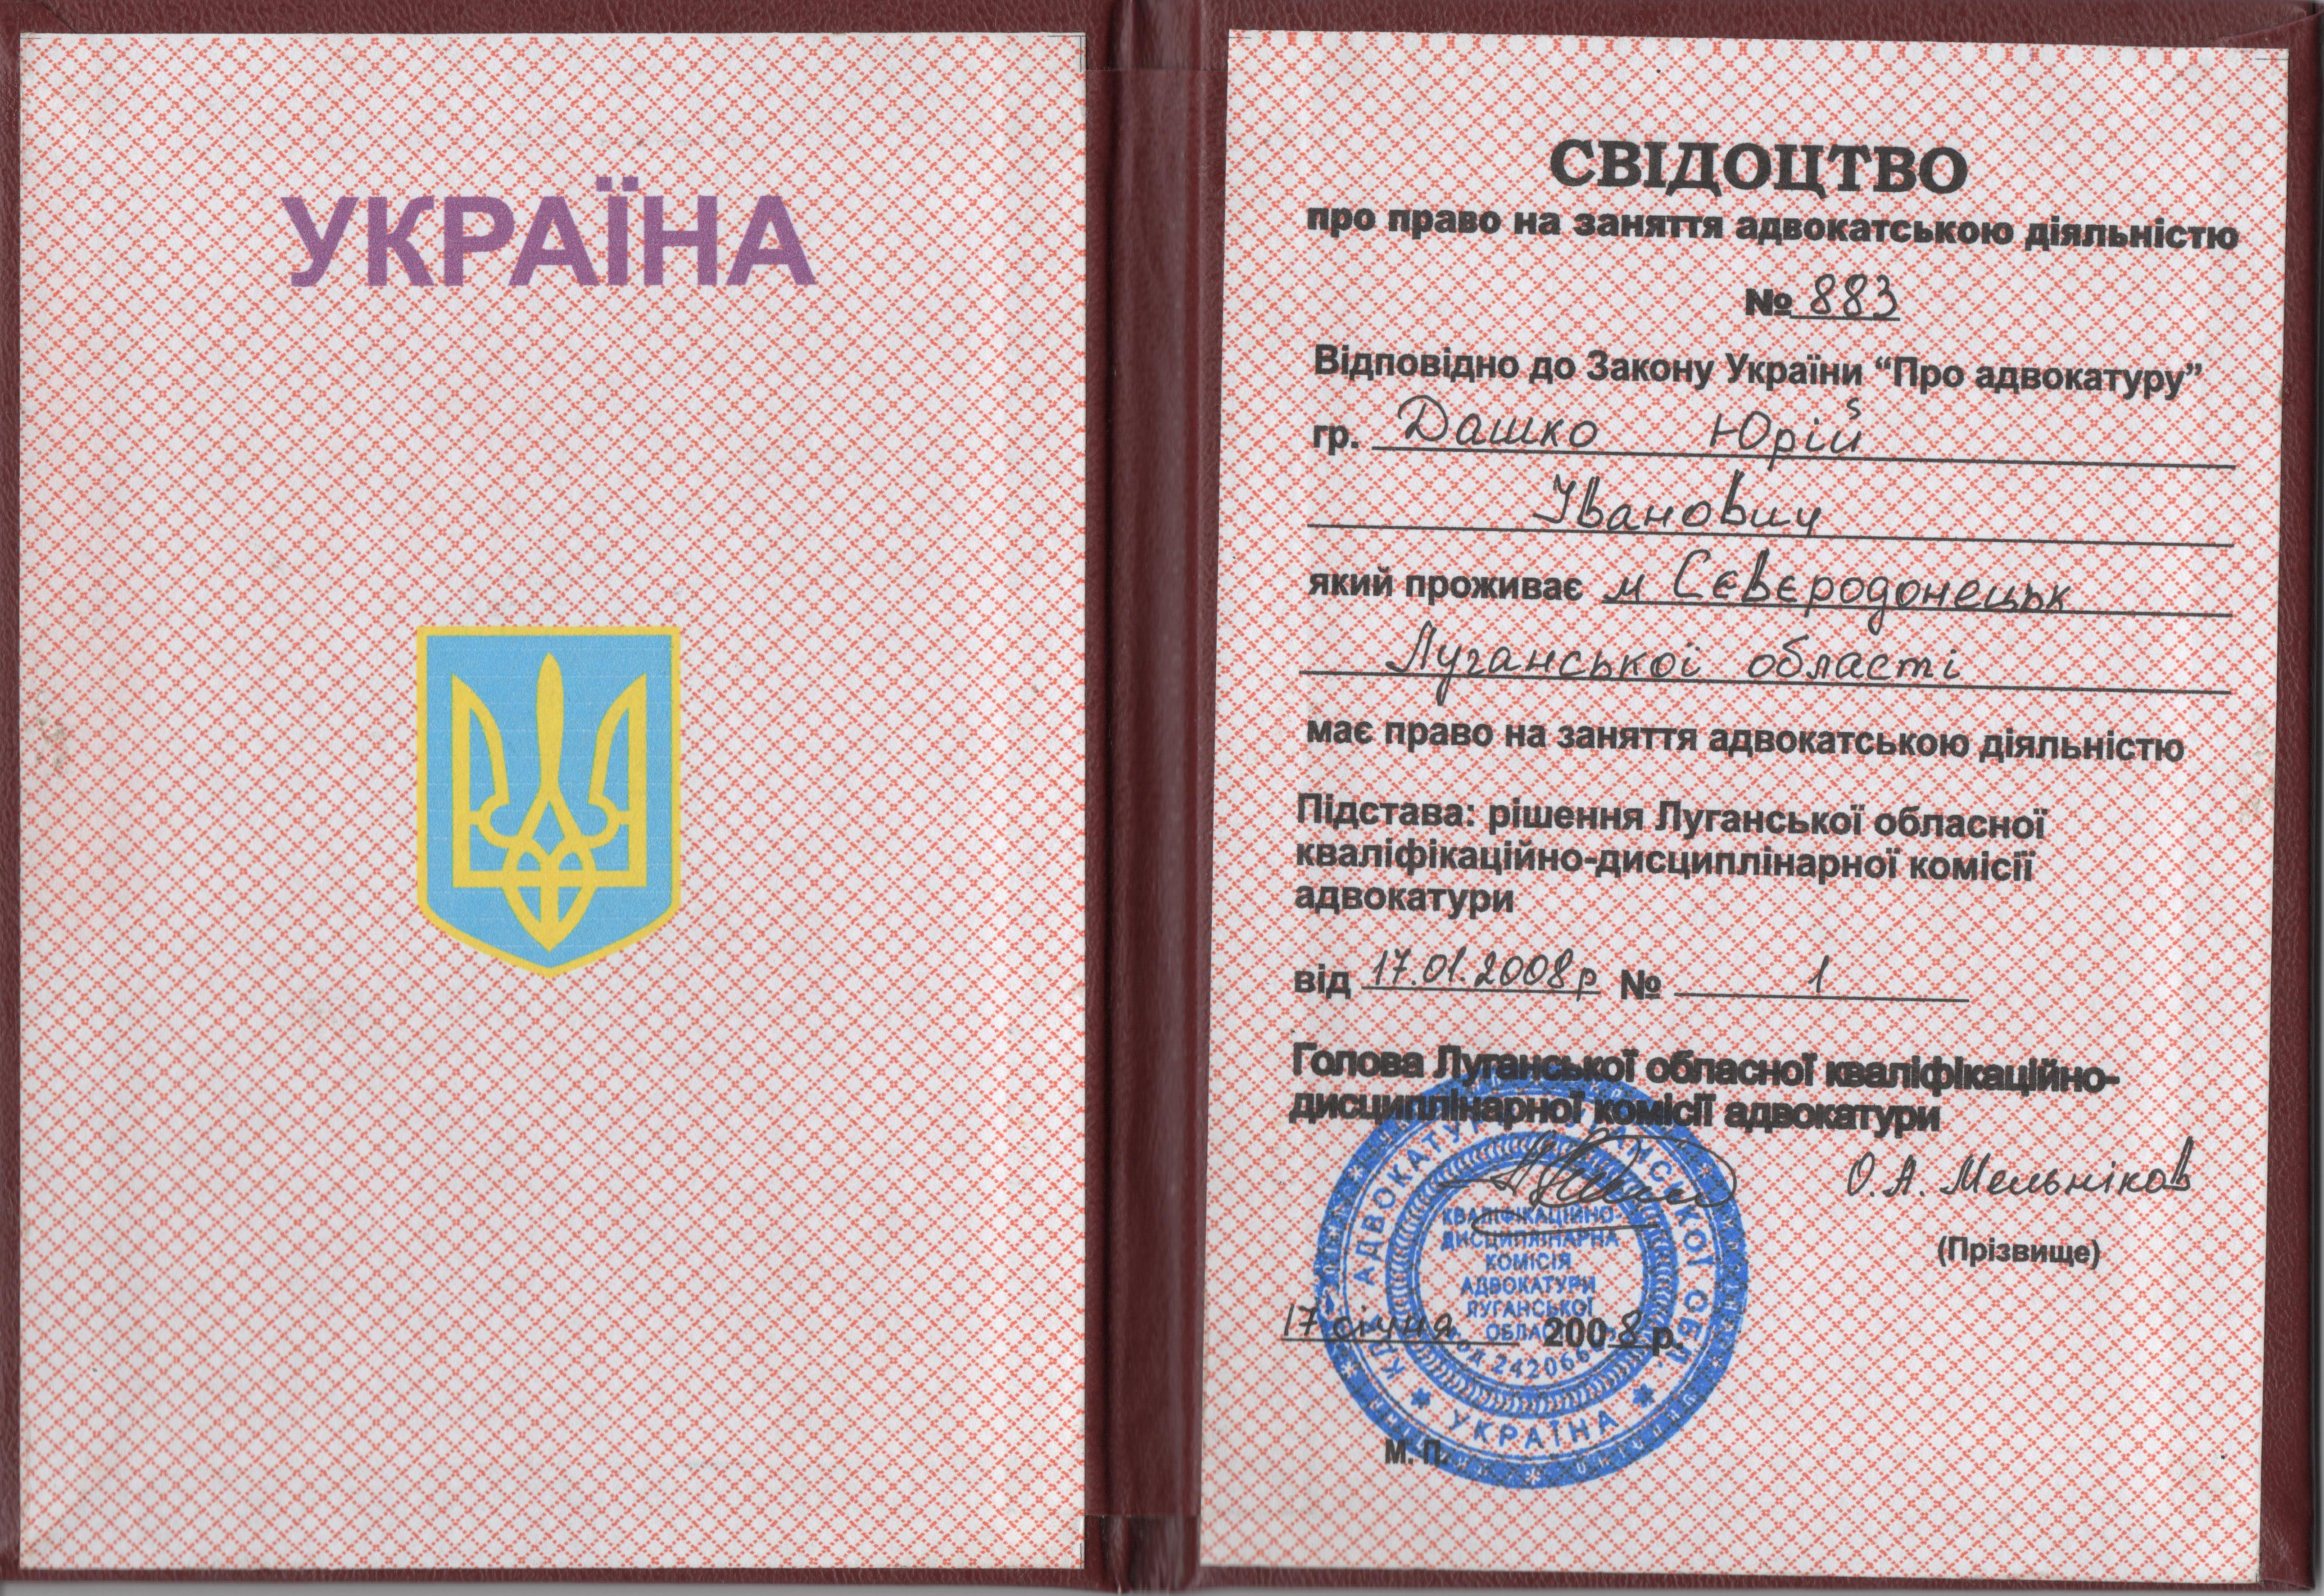 УКРАЇНА
СВІДОЦТВО
про право на заняття адвокатською діяльністю
№ 883
Відповідно до Закону України “Про адвокатуру”
гр. Дашко Юрій
Іванович
який проживає м Сєвєродонецьк
Луганської області
має право на заняття адвокатською діяльністю
Підстава: рішення Луганської обласної
кваліфікаційно-дисциплінарної комісії
адвокатури
від 17.01.2008р № 1
Голова Луганської обласної кваліфікаційно-
дисциплінарної комісії адвокатури
О.А. Мельніков
(Прізвище)
КВАЛІФІКАЦІЙНО-
ДИСЦИПЛІНАРНА
КОМІСІЯ
АДВОКАТУРИ
ЛУГАНСЬКОЇ
17 січня 2008 р.
УКРАЇНА
М. П.